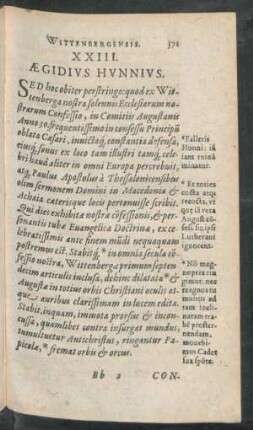 WITTENBERGENSIS. 371
XXIII.
ÆGIDIUS HVNNIUS.
SED hoc obiter perstringo: quod ex Wit-
tenberga nostra solennis Ecclesiarum no-
strarum Confessio, in Comitiis Augustanis
Anno 30. frequentissimo in consessu Principũ
oblata Cæsari, invictaq́; constantia defensa,
eiusq́; sonus ex loco tam illustri tamq́; cele-
bri haud aliter in omni Europa percrebuit,
atq; Paulus Apostolus à Thessalonicensibus
olim sermonem Domini in Macedonia &
Achaia cæterisque locis pertonuisse scribit.
Qui dies exhibita nostræ cõfessionis, & per-
sonantis tubæ Euangelicæ Doctrinæ, ex ce-
lebratissimis ante finem mũdi nequaquam
postremus est. Stabitq́; * in omnia secula cõ-
fessio nostra, Wittenbergæ primum septen-
decim articulis inclusa, dehinc dilatata * &
Augustæ in totius orbis Christiani oculis at-
que auribus clarissimam in lucem edita.
Stabit, inquam, immota prorsus & incon-
cussa, quamlibet contra insurgat mundus,
tumultuetur Antichristus, ringantur Pa-
picolæ, * fremat orbis & orcus.
* Falleris
Hunni: iã
iam ruinã
minatur.
* Et toties
cocta atq;
recocta, vt
quæ sit vera
August.cõ-
fessio sit, ipsi
Lutherani
ignorent.
* Nõ mag-
nopere ria
gimur, nec
Bb 2 CON-